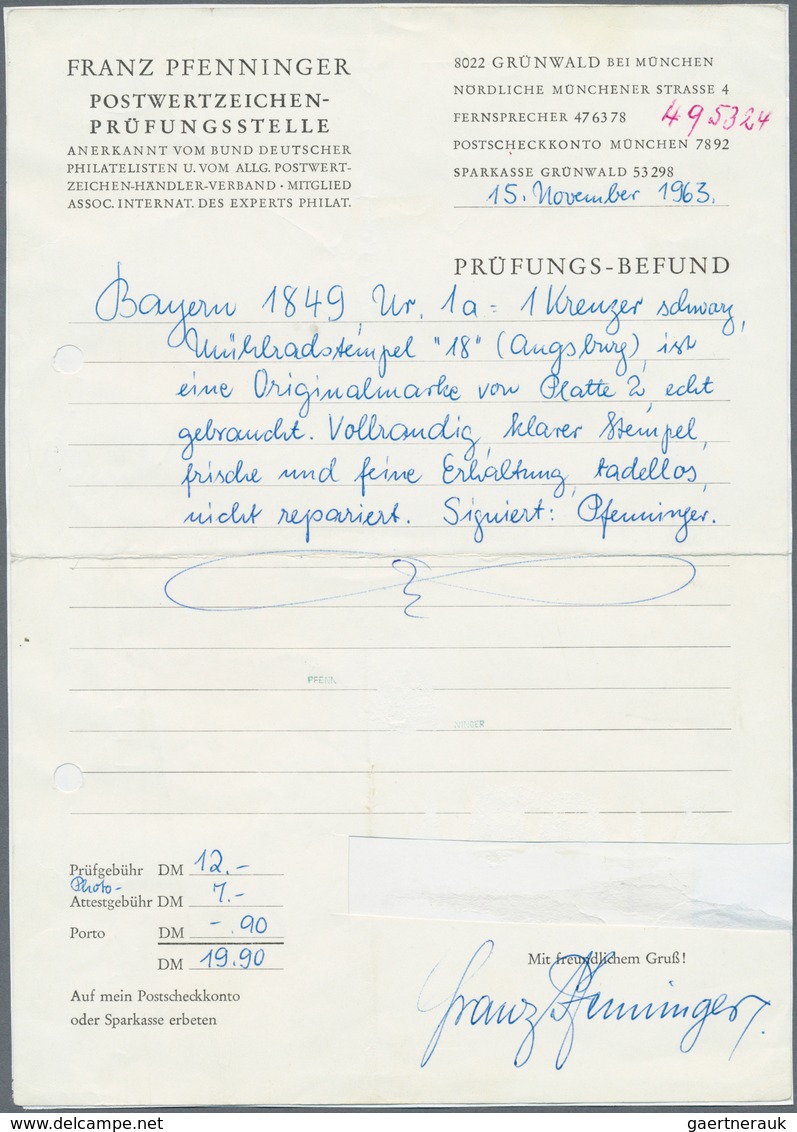 FRANZ PFENNINGER
POSTWERTZEICHEN-
PRÜFUNGSSTELLE
ANERKANNT VOM BUND DEUTSCHER
PHILATELISTEN U. VOM ALLG. POSTWERT-
ZEICHEN-HÄNDLER-VERBAND · MITGLIED
ASSOC. INTERNAT. DES EXPERTS PHILAT.
8022 GRÜNWALD BEI MÜNCHEN
NÖRDLICHE MÜNCHENER STRASSE 4
FERNSPRECHER 47 63 78 495324
POSTSCHECKKONTO MÜNCHEN 78 92
SPARKASSE GRÜNWALD 53 298
15. November 1963.
PRÜFUNGS-BEFUND
Bayern 1849, Nr. 1a = 1 Kreuzer schwarz,
Mühlradstempel "18" (Augsburg), ist
eine Originalmarke von Platte 2, echt
gebraucht. Vollrandig, klarer Stempel,
frische und feine Erhaltung, tadellos,
nicht repariert. Signiert: Pfenninger.
PFENN
NINGER
Prüfgebühr DM 12.-
Photo-
Attestgebühr DM 7.-
Porto DM -.90
DM 19.90
Auf mein Postscheckkonto
oder Sparkasse erbeten
Mit freundlichem Gruß!
Franz Pfenninger.
gaertnerauk